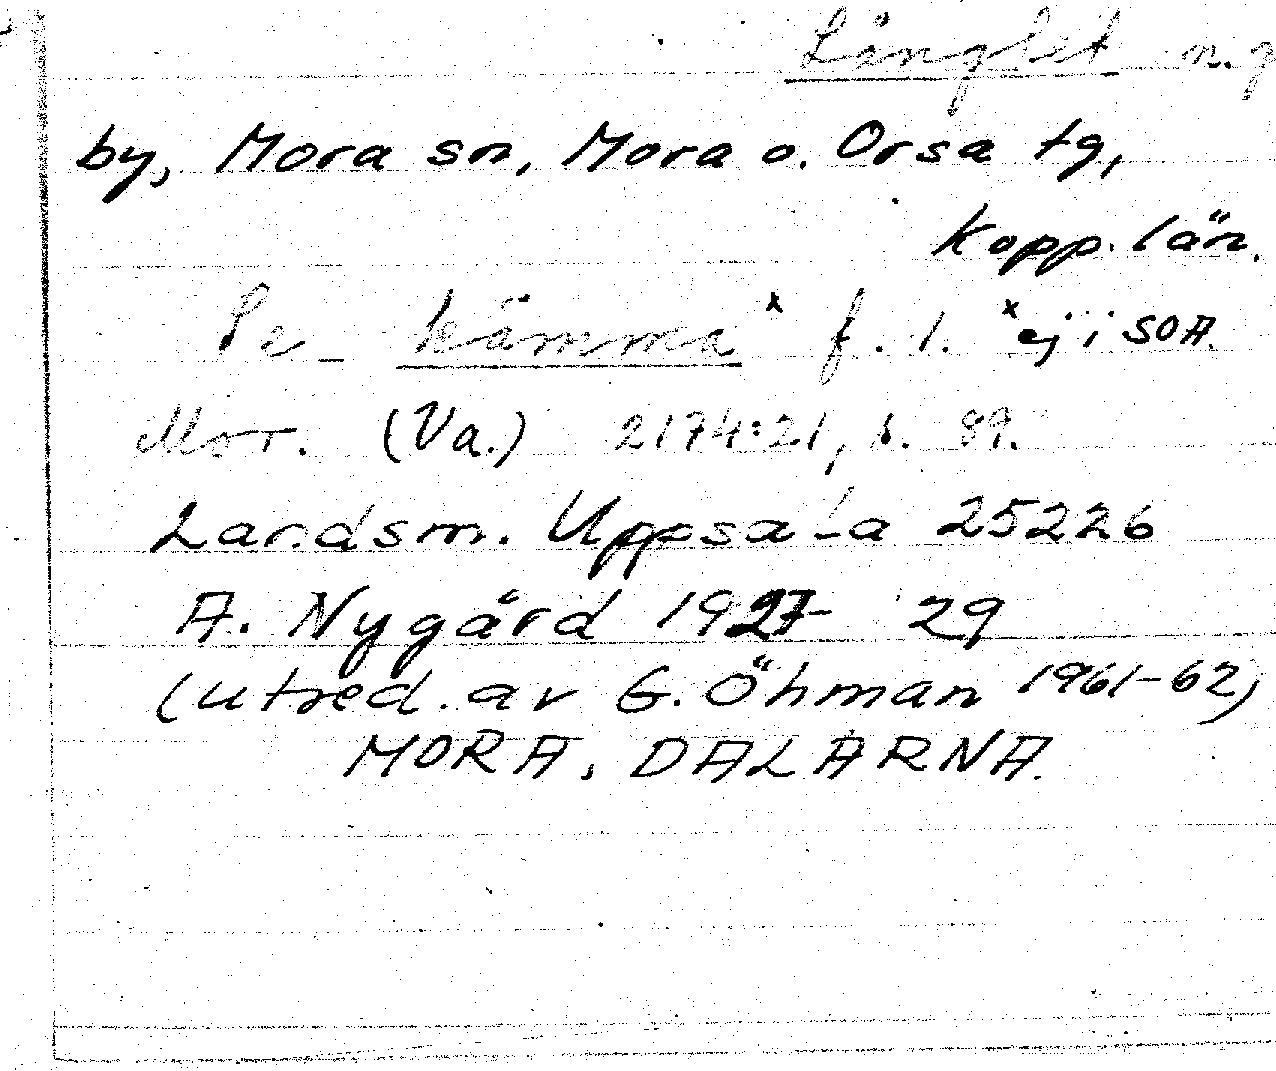 Långlet n.g
by, Mora sn, Mora o. Orsa tg,
Kopp. län.
Se kämma x f. 1. x ej i SOA.
Mor. (Va.) 2174:21, s. 89.
Landsm. Uppsala 25226
A. Nygård 1927-29
(utred. av G. Öhman 1961-62)
MORA, DALARNA.